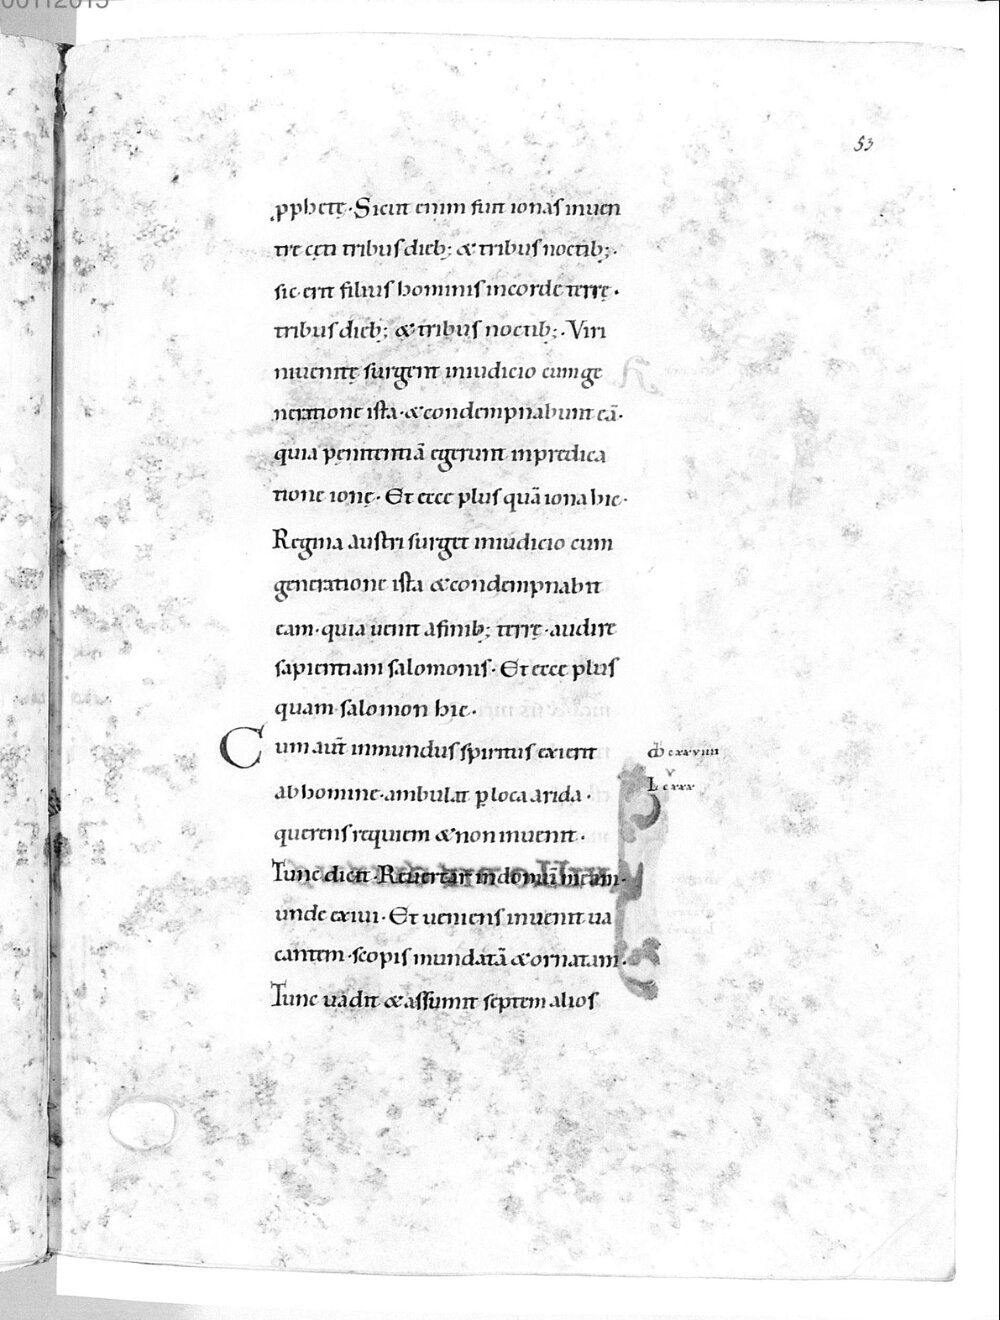 00112015
53
ꝓphetę. Sicut enim fuit ionas inuen
tre cęti tribus dieb; & tribus noctib;.
sic erit filius hominis incorde terrę.
tribus dieb; & tribus noctib;. Viri
niuenitę surgent iniudicio cumge
neratione ista. & condempnabunt eā.
quia pęnitentiā egerunt inpredica
tione ionę. Et ecce plus quā iona hic.
Regina austri surget iniudicio cum
generatione ista & condempnabit
eam. quia uenit afinib; terrę. audire
sapientiam salomonis. Et ecce plus
quam salomon hic.
Cum aut̄ inmundus spiritus exierit
ab homine. ambulat ꝑ loca arida.
querens requiem & non inuenit.
Tunc dicit. Reuertar in domū meam.
unde exiui. Et ueniens inuenit ua
cantem. scopis mundatā & ornatam.
Tunc uadit & assumit septem alios
cxxviiii
v
L cxxx